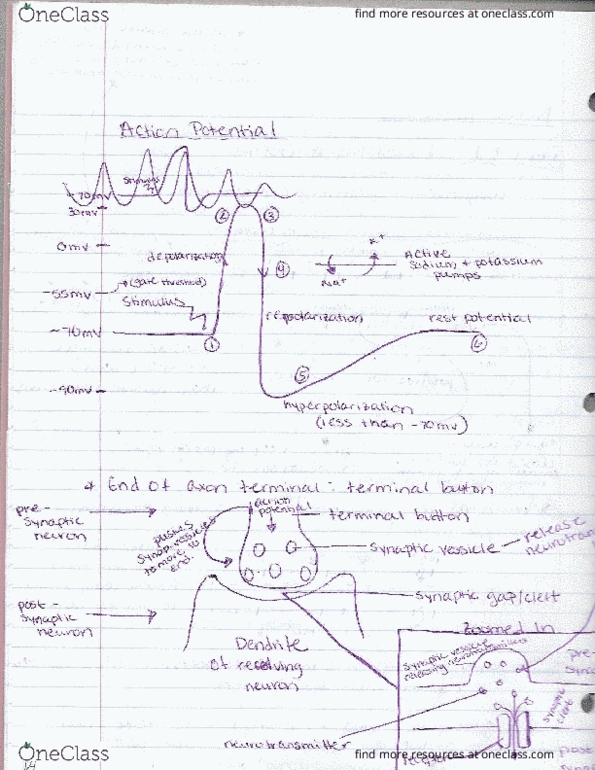 OneClass
find more resources at oneclass.com
Action Potential
Stimulus
+70mv
30mv
② ③
0mv
depolarization
④
K+
Na+
Active
sodium + potassium
pumps
-55mv
(gate threshold)
Stimulus
repolarization
rest potential
-70mv
① ⑥
⑤
-90mv
hyperpolarization
(less than -70mv)
* End of axon terminal: terminal button
pre-
synaptic
neuron
action
potential
terminal button
pushes
synap. vesicles
to move to
end.
synaptic vesicle
release
neurotran
synaptic gap/cleft
post-
synaptic
neuron
Dendrite
of receiving
neuron
Zoomed In
synaptic vesicle
releasing neurotransmitters
pre-
syna
synaptic
cleft
neurotransmitter
receptor
post
syna
OneClass
find more resources at oneclass.com